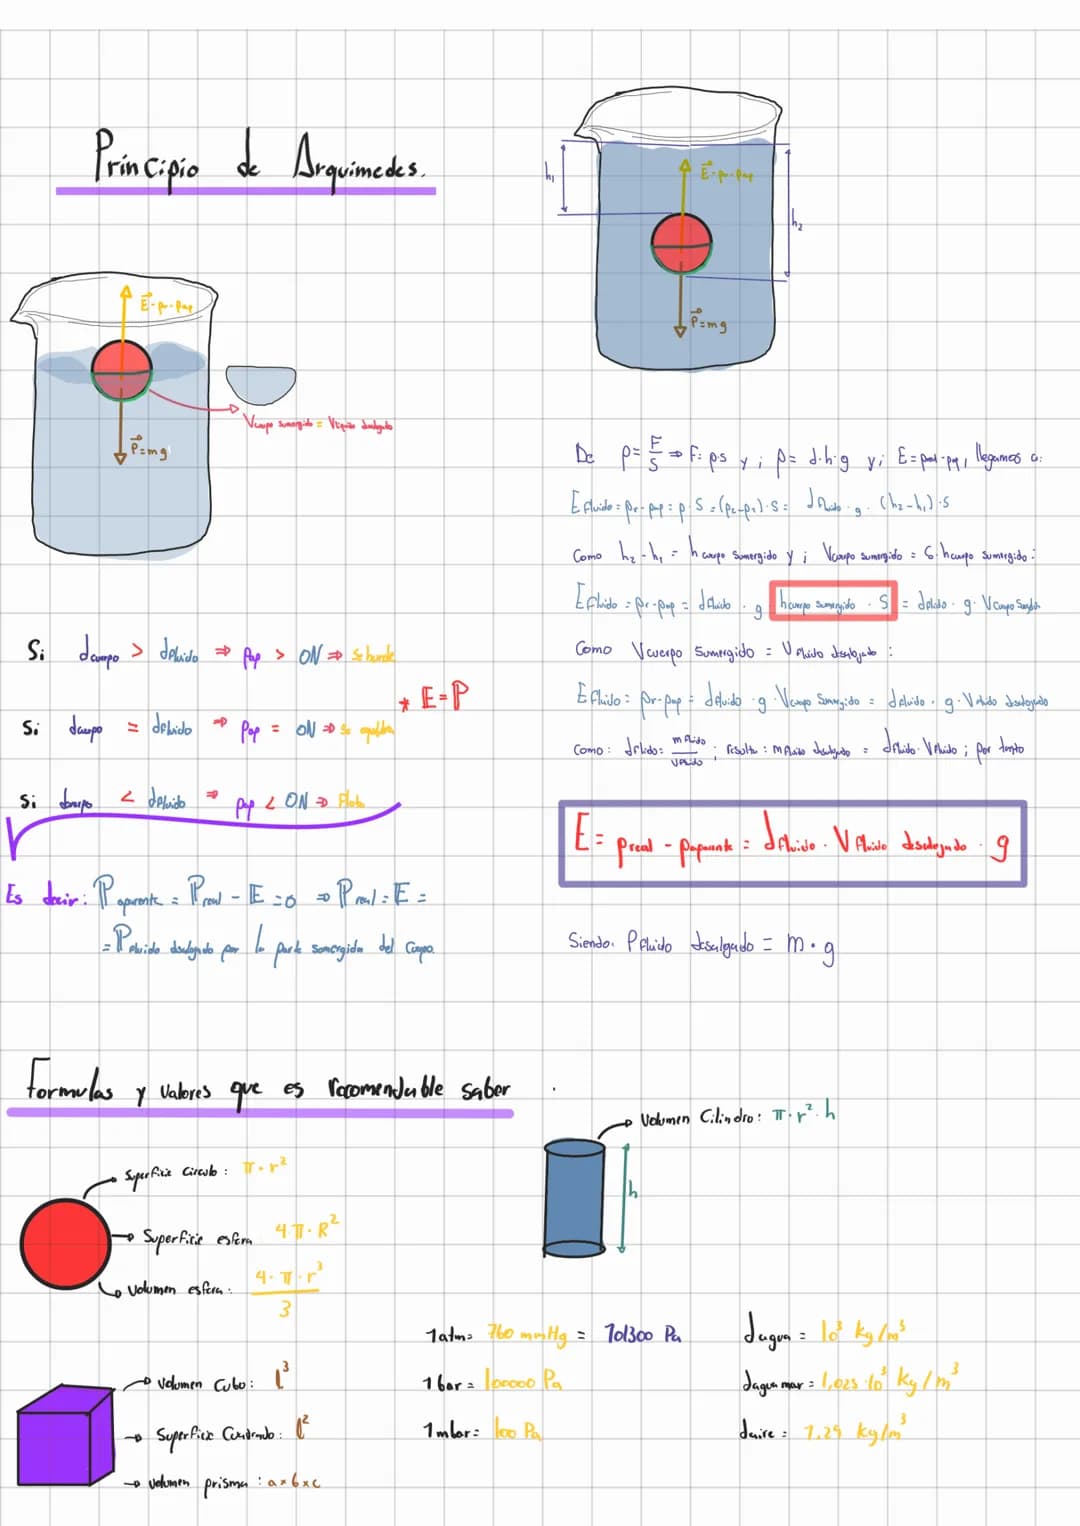 Principio de Arquimedes.
E = pr - pap
P = mg
Vcuerpo sumergido = Vlíquido desalojado
h₁
E = pr - pap
h₂
P = mg
De p = F/S ⇒ F = p·s y ; p = d·h·g y ; E = preal - pap, llegamos a:
E fluido = pr - pap = p · S = (p₂-p₁) · S = d fluido · g · (h₂-h₁) · S
Como h₂ - h₁ = h cuerpo sumergido y ; Vcuerpo sumergido = S · h cuerpo sumergido :
E fluido = pr - pap = d fluido · g h cuerpo sumergido · S = d fluido · g · V cuerpo
Como V cuerpo sumergido = V fluido desalojado :
E fluido = pr - pap = d fluido · g · V cuerpo sumergido = d fluido · g · V fluido desalojado
Como : d fluido = m fluido / V fluido ; resulta : m fluido desalojado = d fluido · V fluido ; por tanto
E = preal - paparente = d fluido · V fluido desalojado · g
Siendo: P fluido desalgado = m · g
Si dcuerpo > dfluido ⇒ Pap > 0N ⇒ Se hunde
* E = P
Si dcuerpo = dfluido ⇒ Pap = 0N ⇒ se equilibra
Si dcuerpo < dfluido ⇒ Pap < 0N ⇒ Flota
Es decir: P aparente = P real - E = 0 ⇒ P real = E =
= P fluido desalojado por la parte somergida del cuerpo.
Formulas y valores que es recomendable saber
Superficie Circulo : π · r²
Superficie esfera 4·π·R²
Volumen esfera : 4·π·r³ / 3
Volumen Cilindro : π·r²·h
h
Volumen Cubo : l³
Superficie Cuadrado : l²
Volumen prisma : a×b×c
1 atm = 760 mmHg = 101300 Pa
1 bar = 100000 Pa
1 mbar = 100 Pa
dagua = 10³ kg/m³
dagua mar = 1,025·10³ kg/m³
daire = 1.29 kg/m³